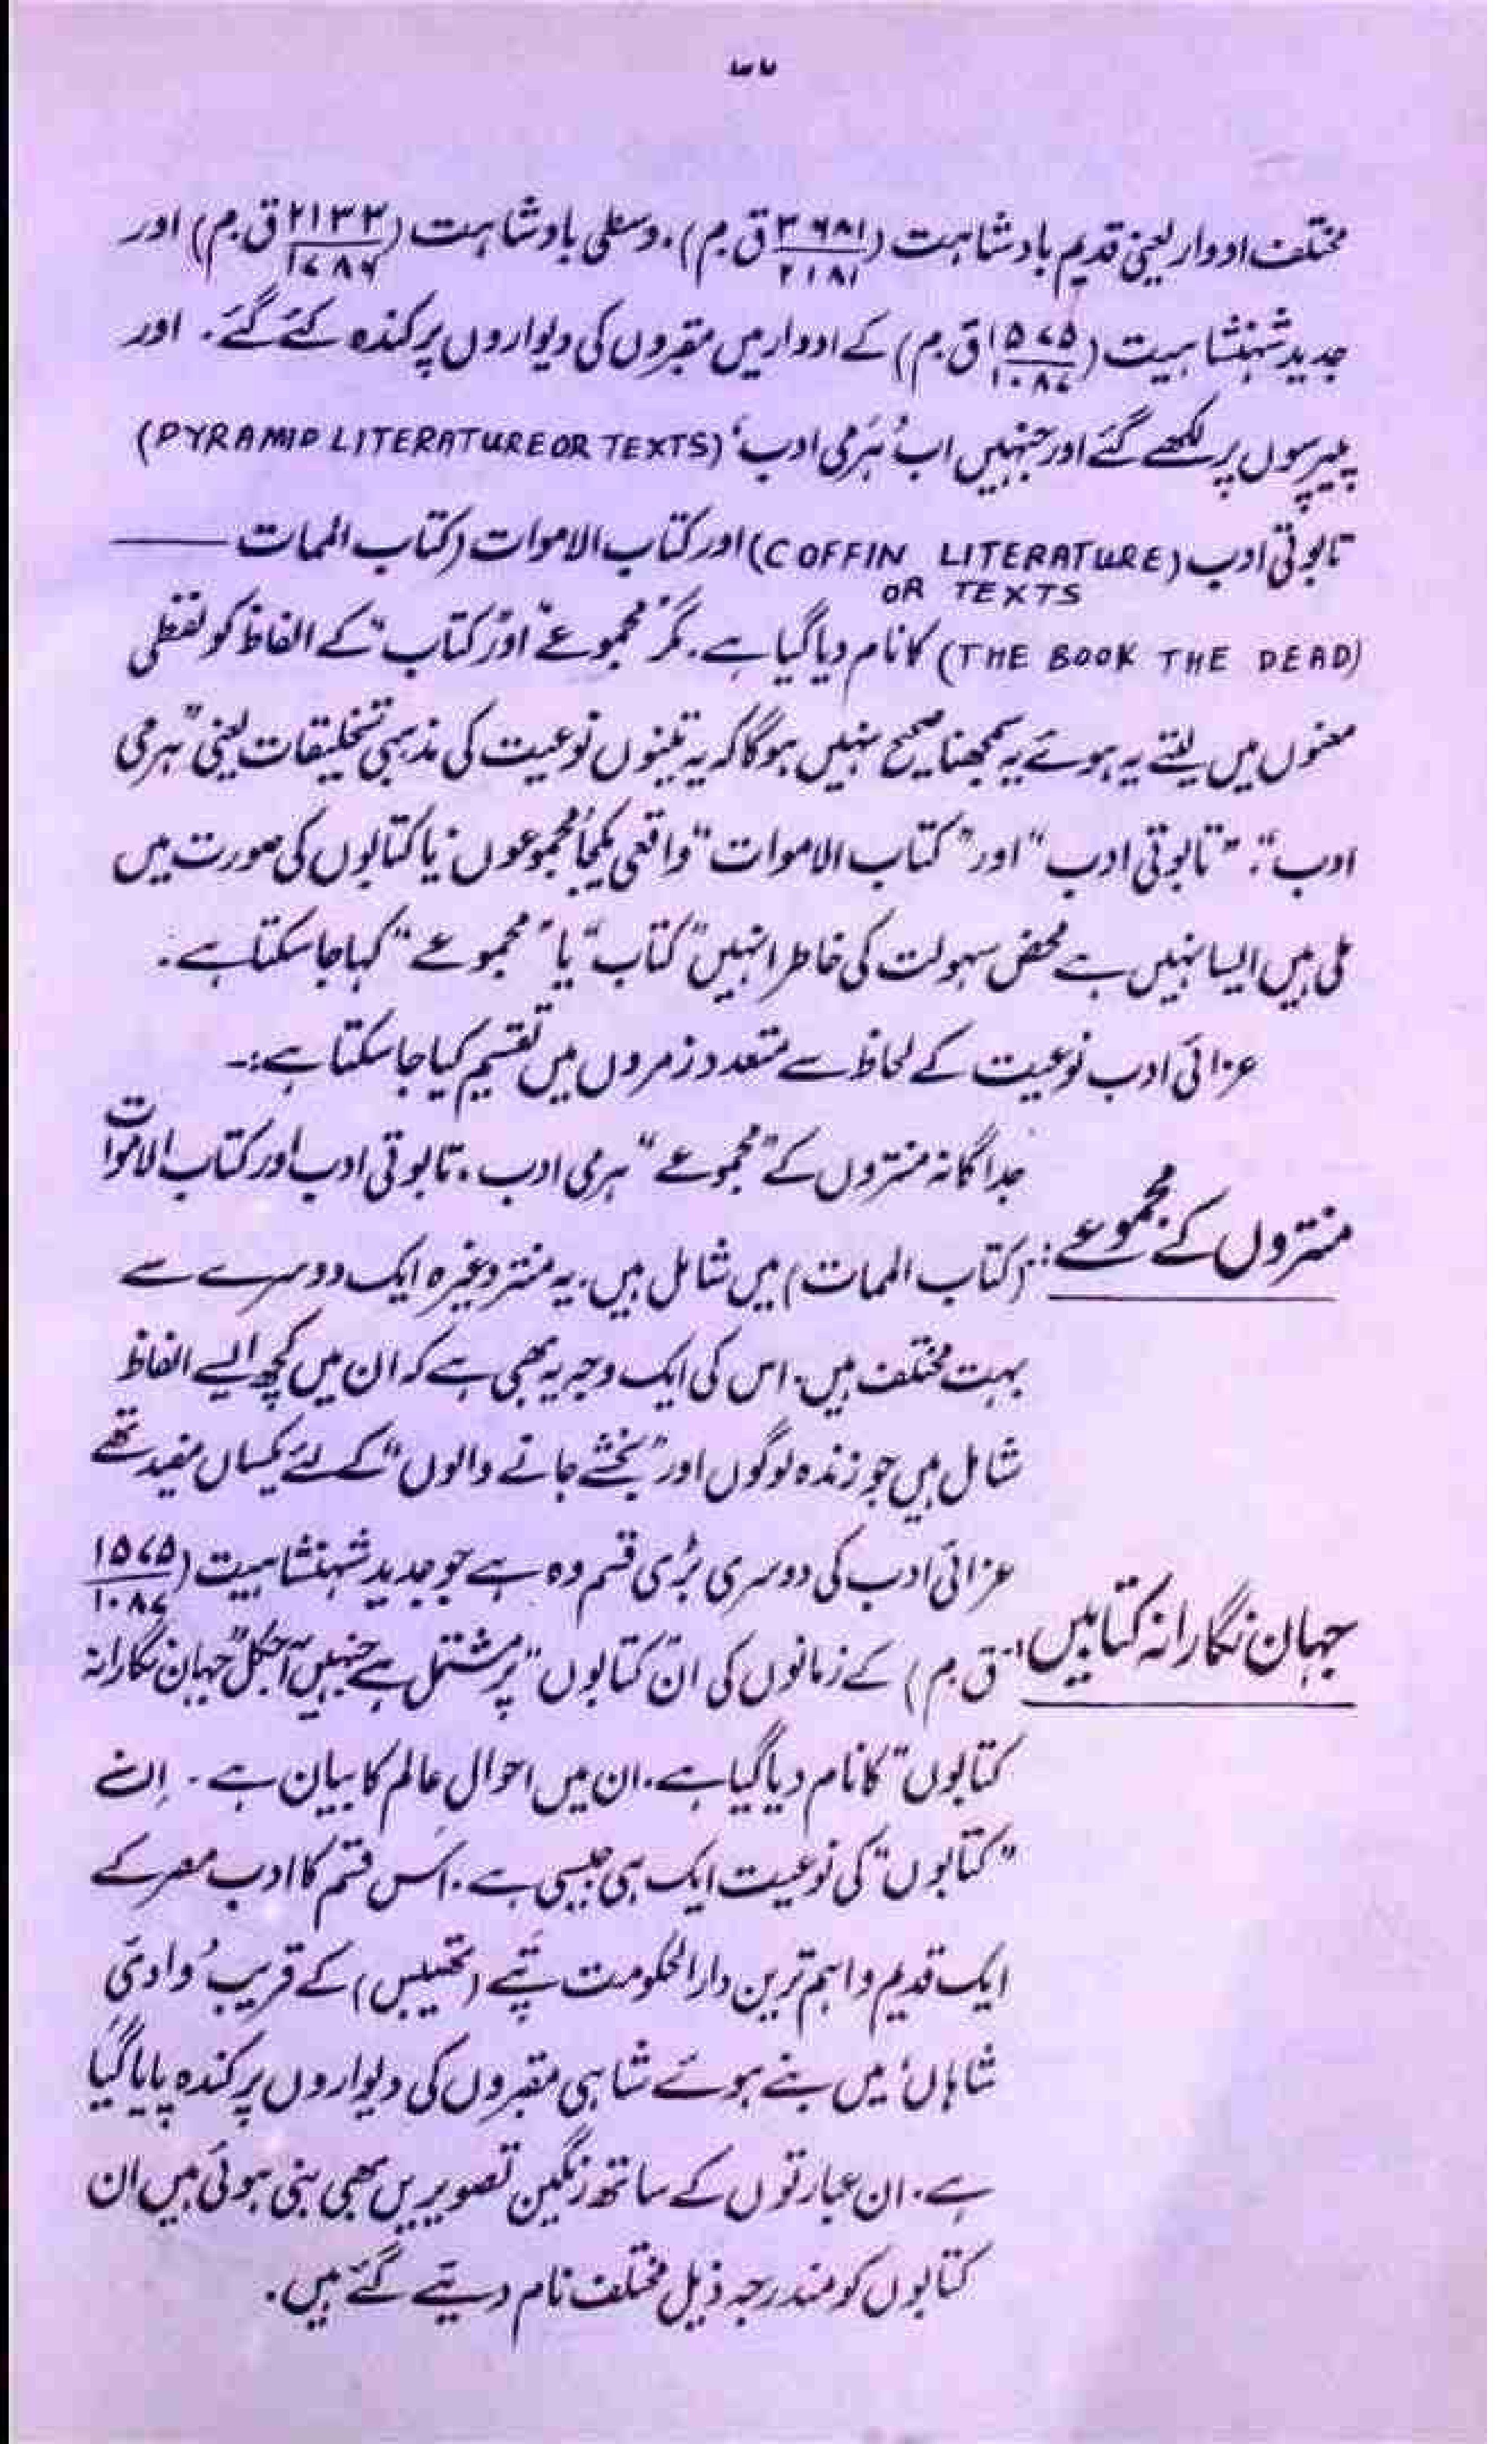 مختلف ادوار یعنی قدیم بادشاہت (۳۶۸۱/۲۱۸۱ ق.م)، وسطی بادشاہت (۲۱۳۳/۱۷۸۶ ق.م) اور
جدید شہنشاہیت (۱۵۷۵/۱۰۸۷ ق.م) کے ادوار میں مقبروں کی دیواروں پر کندہ کئے گئے۔ اور
پیپرسوں پر لکھے گئے اور جنہیں اب 'ہَرمی ادب' (PYRAMID LITERATURE OR TEXTS)
تابوتی ادب (COFFIN LITERATURE OR TEXTS) اور کتاب الاموات (کتاب الممات ——
(THE BOOK THE DEAD) کا نام دیا گیا ہے۔ مگر "مجموعے" اور "کتاب" کے الفاظ کو لفظی
معنوں میں لیتے یہ ہوئے یہ سمجھنا صحیح نہیں ہوگا کہ یہ تینوں نوعیت کی مذہبی تخلیقات یعنی "ہرمی
ادب"، "تابوتی ادب" اور "کتاب الاموات" واقعی یکجا "مجموعوں" یا کتابوں کی صورت میں
ملی ہیں ایسا نہیں ہے محض سہولت کی خاطر انہیں "کتاب" یا "مجموعے" کہا جا سکتا ہے۔
عزائی ادب نوعیت کے لحاظ سے متعدد زمروں میں تقسیم کیا جا سکتا ہے:۔
منتروں کے مجموعے:
جداگانہ منتروں کے "مجموعے" ہرمی ادب، تابوتی ادب اور کتاب الاموات
(کتاب الممات) میں شامل ہیں۔ یہ منتر وغیرہ ایک دوسرے سے
بہت مختلف ہیں۔ اس کی ایک وجہ یہ بھی ہے کہ ان میں کچھ ایسے الفاظ
شامل ہیں جو زندہ لوگوں اور "بخشے جانے والوں" کے لئے یکساں مفید تھے
جہان نگارانہ کتابیں:
عزائی ادب کی دوسری بڑی قسم وہ ہے جو جدید شہنشاہیت (۱۵۷۵/۱۰۸۷
ق.م) کے زمانوں کی ان "کتابوں" پر مشتمل ہے جنہیں آجکل "جہان نگارانہ
کتابوں" کا نام دیا گیا ہے۔ ان میں احوالِ عالم کا بیان ہے۔ اِن
"کتابوں" کی نوعیت ایک ہی جیسی ہے۔ اس قسم کا ادب مصر کے
ایک قدیم و اہم ترین دارالحکومت تپے (تھیبس) کے قریب 'وادیٔ
شاہاں' میں بنے ہوئے شاہی مقبروں کی دیواروں پر کندہ پایا گیا
ہے۔ ان عبارتوں کے ساتھ رنگین تصویریں بھی بنی ہوئی ہیں ان
کتابوں کو مندرجہ ذیل مختلف نام دیئے گئے ہیں۔